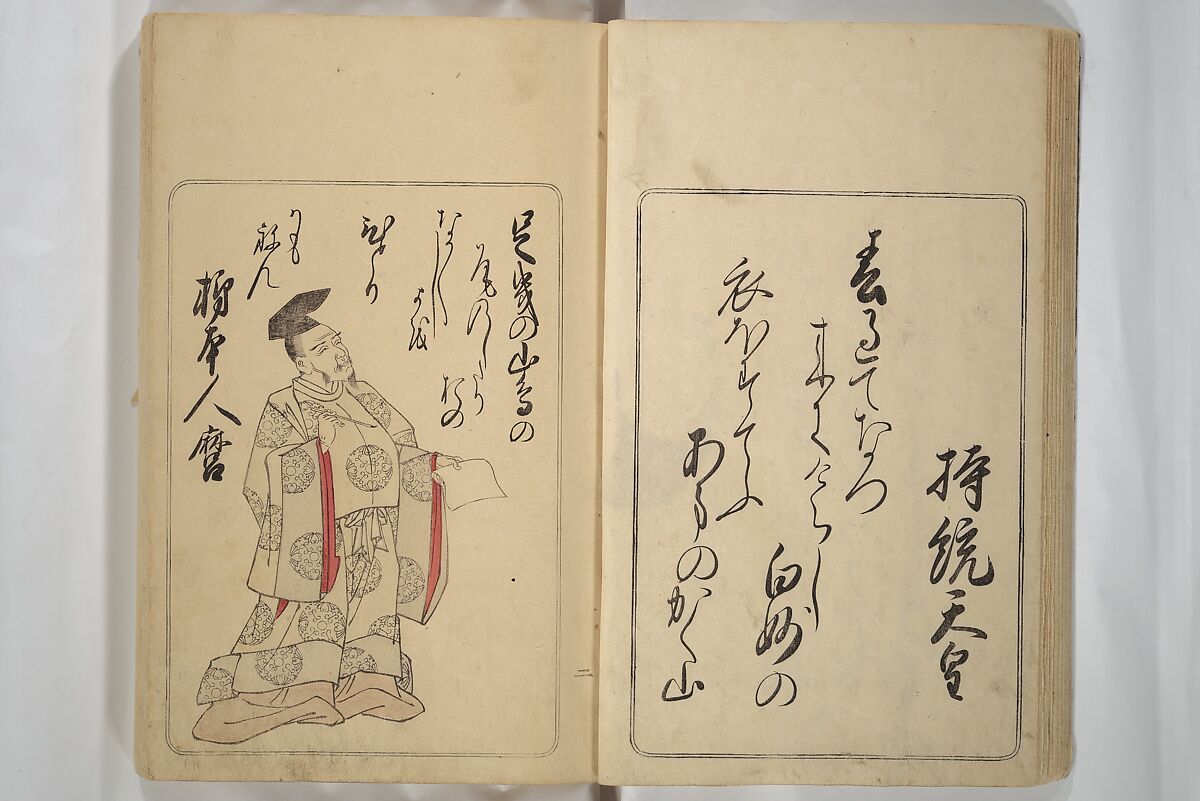 持統天皇
春過てなつ
来にけらし
白妙の
衣ほすてふ
あまのかく山
足曳の山鳥の
尾のしたり
おの
なか〱し
よを
ひとり
かも
ねん
柿本人麿
二